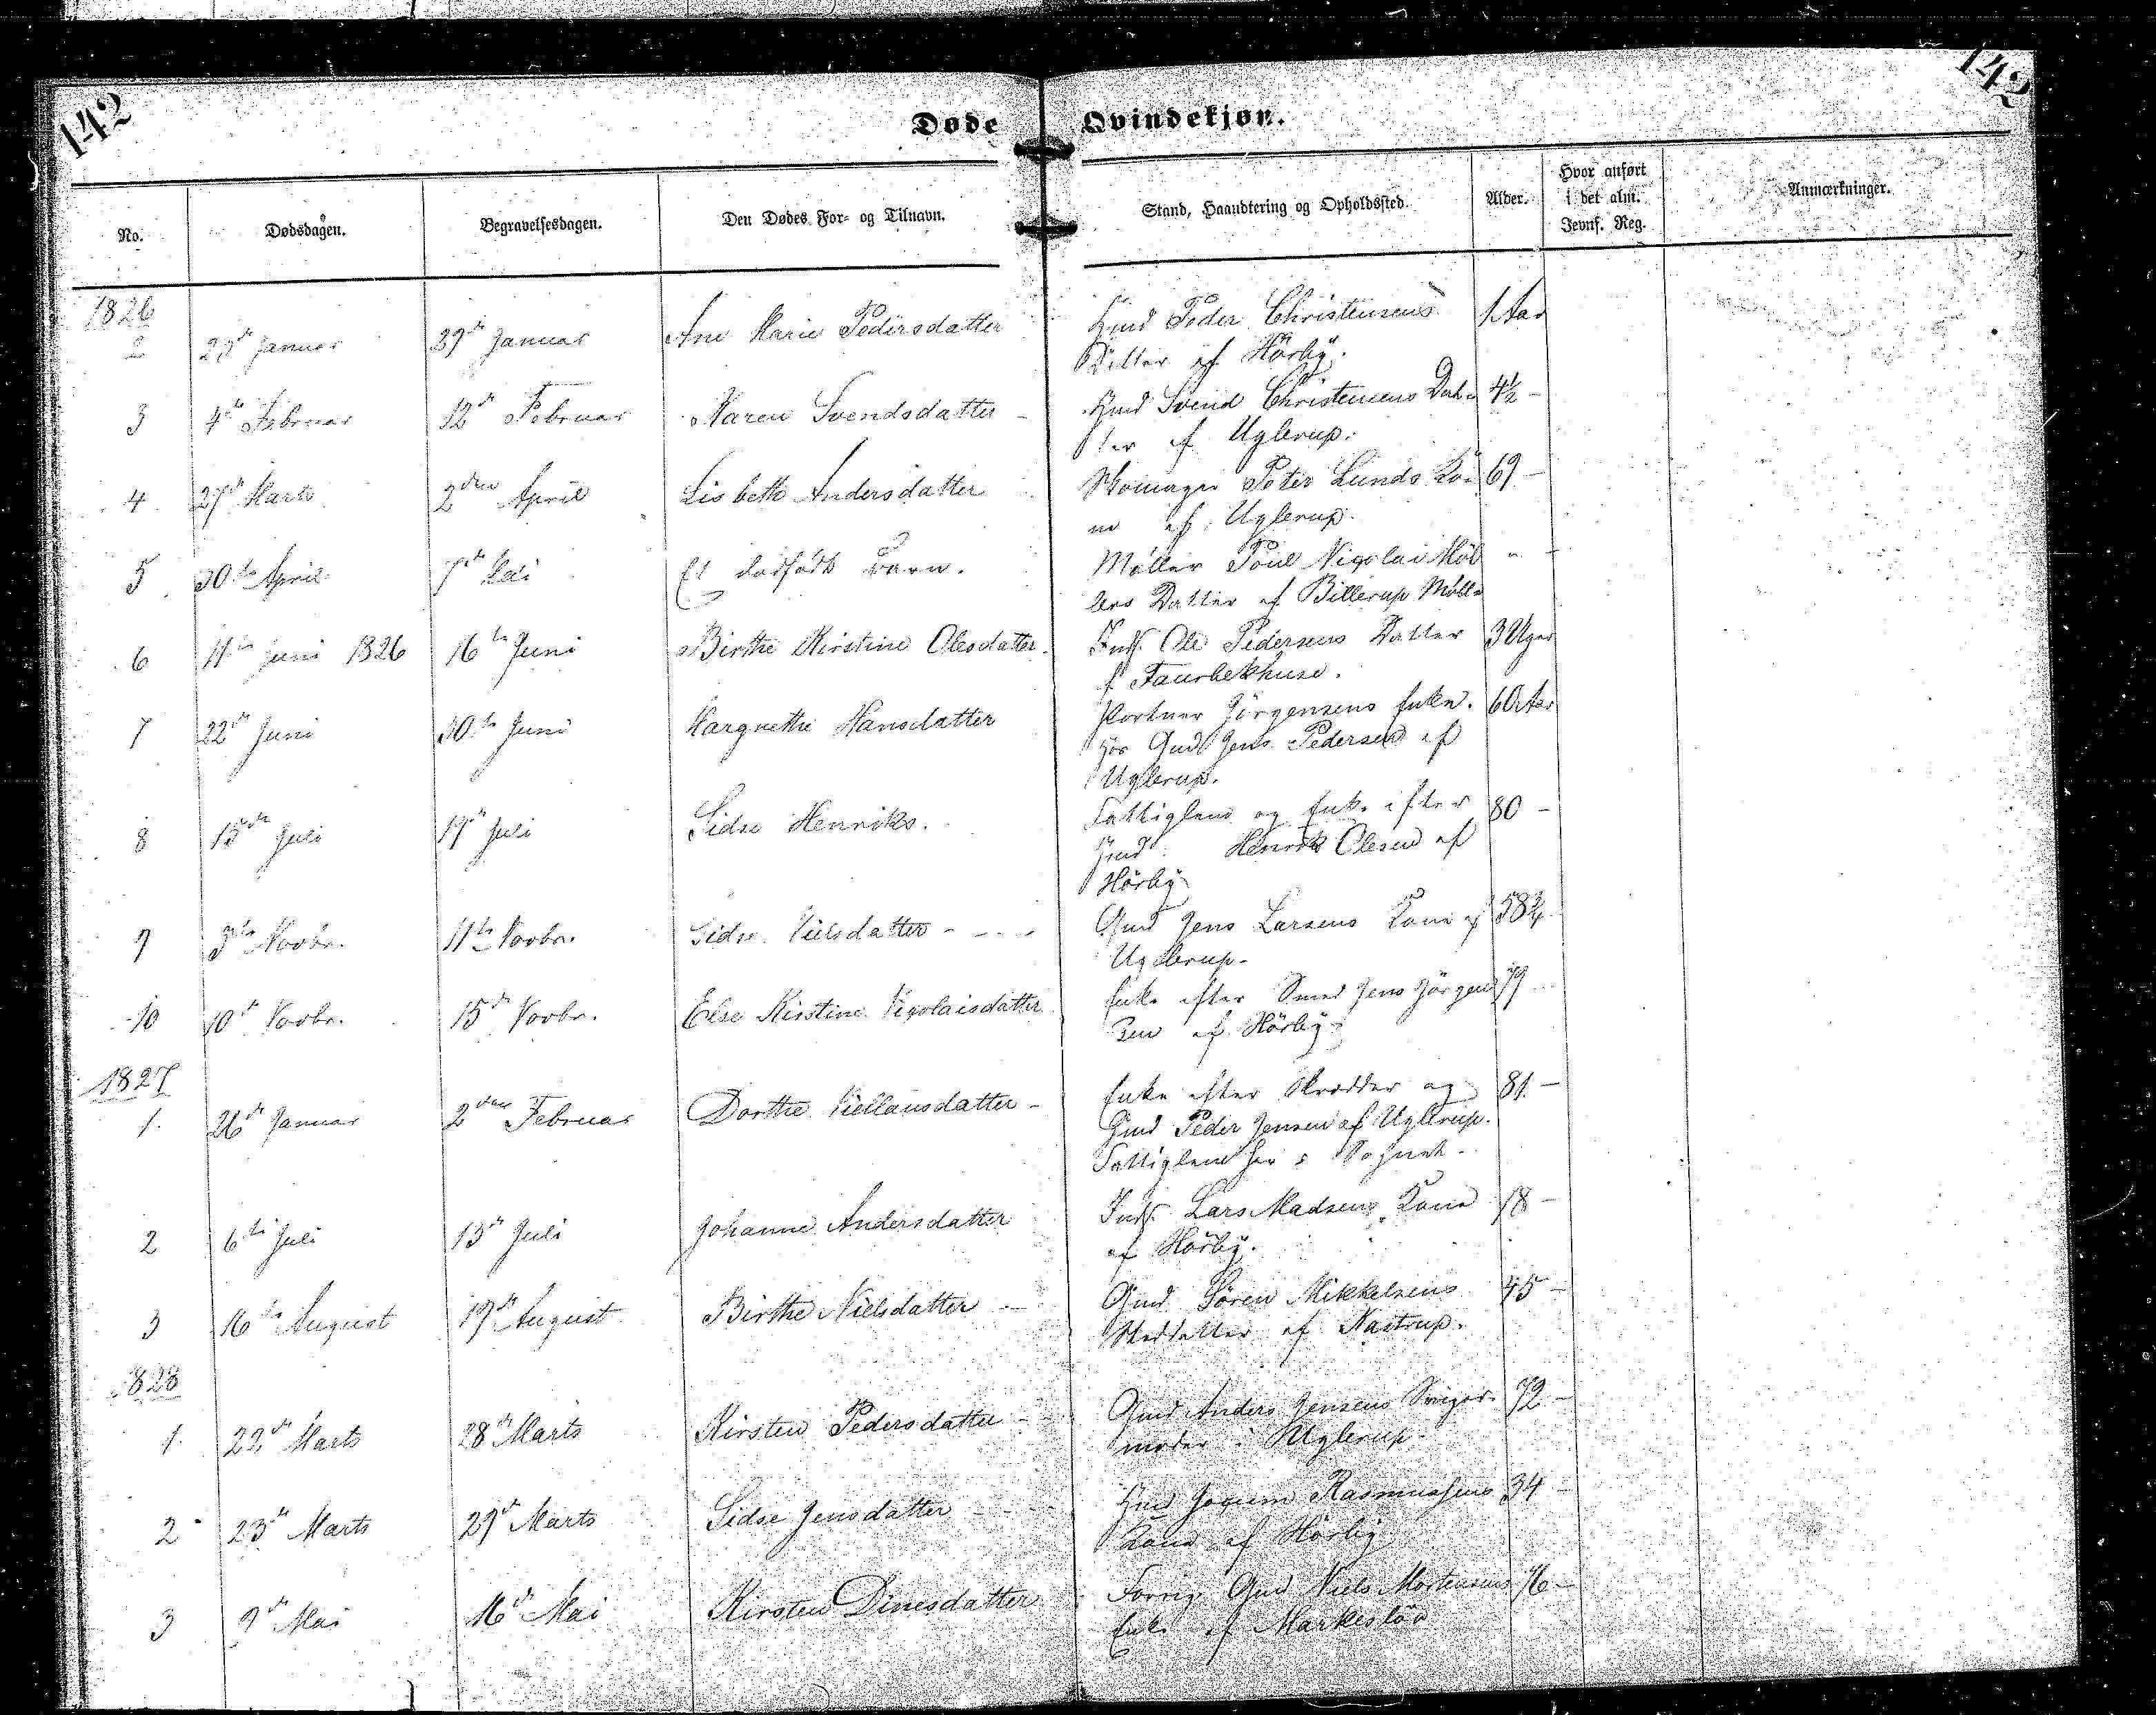 142
142
Døde Qvindekjøn.
No. Dødsdagen. Begravelsesdagen. Den Dødes For- og Tilnavn. Stand, Haandtering og Opholdssted. Alder. Hvor anført i det alm. Jevnf. Reg. Anmærkninger.
1826
2 Januar 29de Januar Ane Marie Pedersdatter Huusmd Peder Christensens 1 Aar
Datter af Hörby.
3 4de Februar 12te Februar Maren Svendsdatter Svend Christensens Dat- 4½ -
ter af Uglerup.
4 27de Marts 2den April Lisbeth Andersdatter Skomager Peter Lunds Ko- 69 -
ne af Uglerup.
5 30te April 7de Mai Et dødfødt Barn. Møller Poul Nicolai Møl " -
lers Datter af Billerup Mølle
6 11te Juni 1826 16te Juni Birthe Kirstine Olesdatter. Inds. Ole Pedersens Datter 3 Uger
f Faurbekhuse.
7 22de Juni 30te Juni Margrethe Hansdatter Jörgensens Enke. 60 Aar
hos Gmd Jens Pedersen af
Uglerup.
8 15de Juli 19de Juli Sidse Henriks. Fattiglem og Enke efter 80 -
Hmd: Henrik Olesen af
Hörby
9 Novbr. 11te Novbr. Sidse Nielsdatter - - - Gmd Jens Larsens Kone af 58¾
Uglerup.
10 10de Novbr. 15de Novbr. Else Kirstine Nicolaisdatter Enke efter Smed Jens Jörgen 79 -
sen af Hörby.
1827
1. 26de Januar 2den Februar Dorthe datter - Enke efter Skrædder og 81. -
Hmd Peder Jensen af Uglerup.
Fattiglem her i Sognet.
2 6te Juli 13de Juli Johanne Andersdatter Inds. Lars Madsens Kone 78 -
af Hörby.
3 16de August 19de August Birthe Nielsdatter - Gmd Sören Mikkelsens 45 -
Steddatter af Nastrup.
1828
1. 22de Marts 28de Marts Kirsten Pedersdatter - Gmd Anders Jensens Sviger- 72 -
moder i Uglerup
2 23de Marts 29de Marts Sidse Jensdatter - Hmd Jocum Rasmussens 34 -
Kone af Hörby
3 9de Mai 16de Mai Kirsten Dinesdatter Forrig Gmd Niels Mortensens 76 -
Enke af Markeslöv